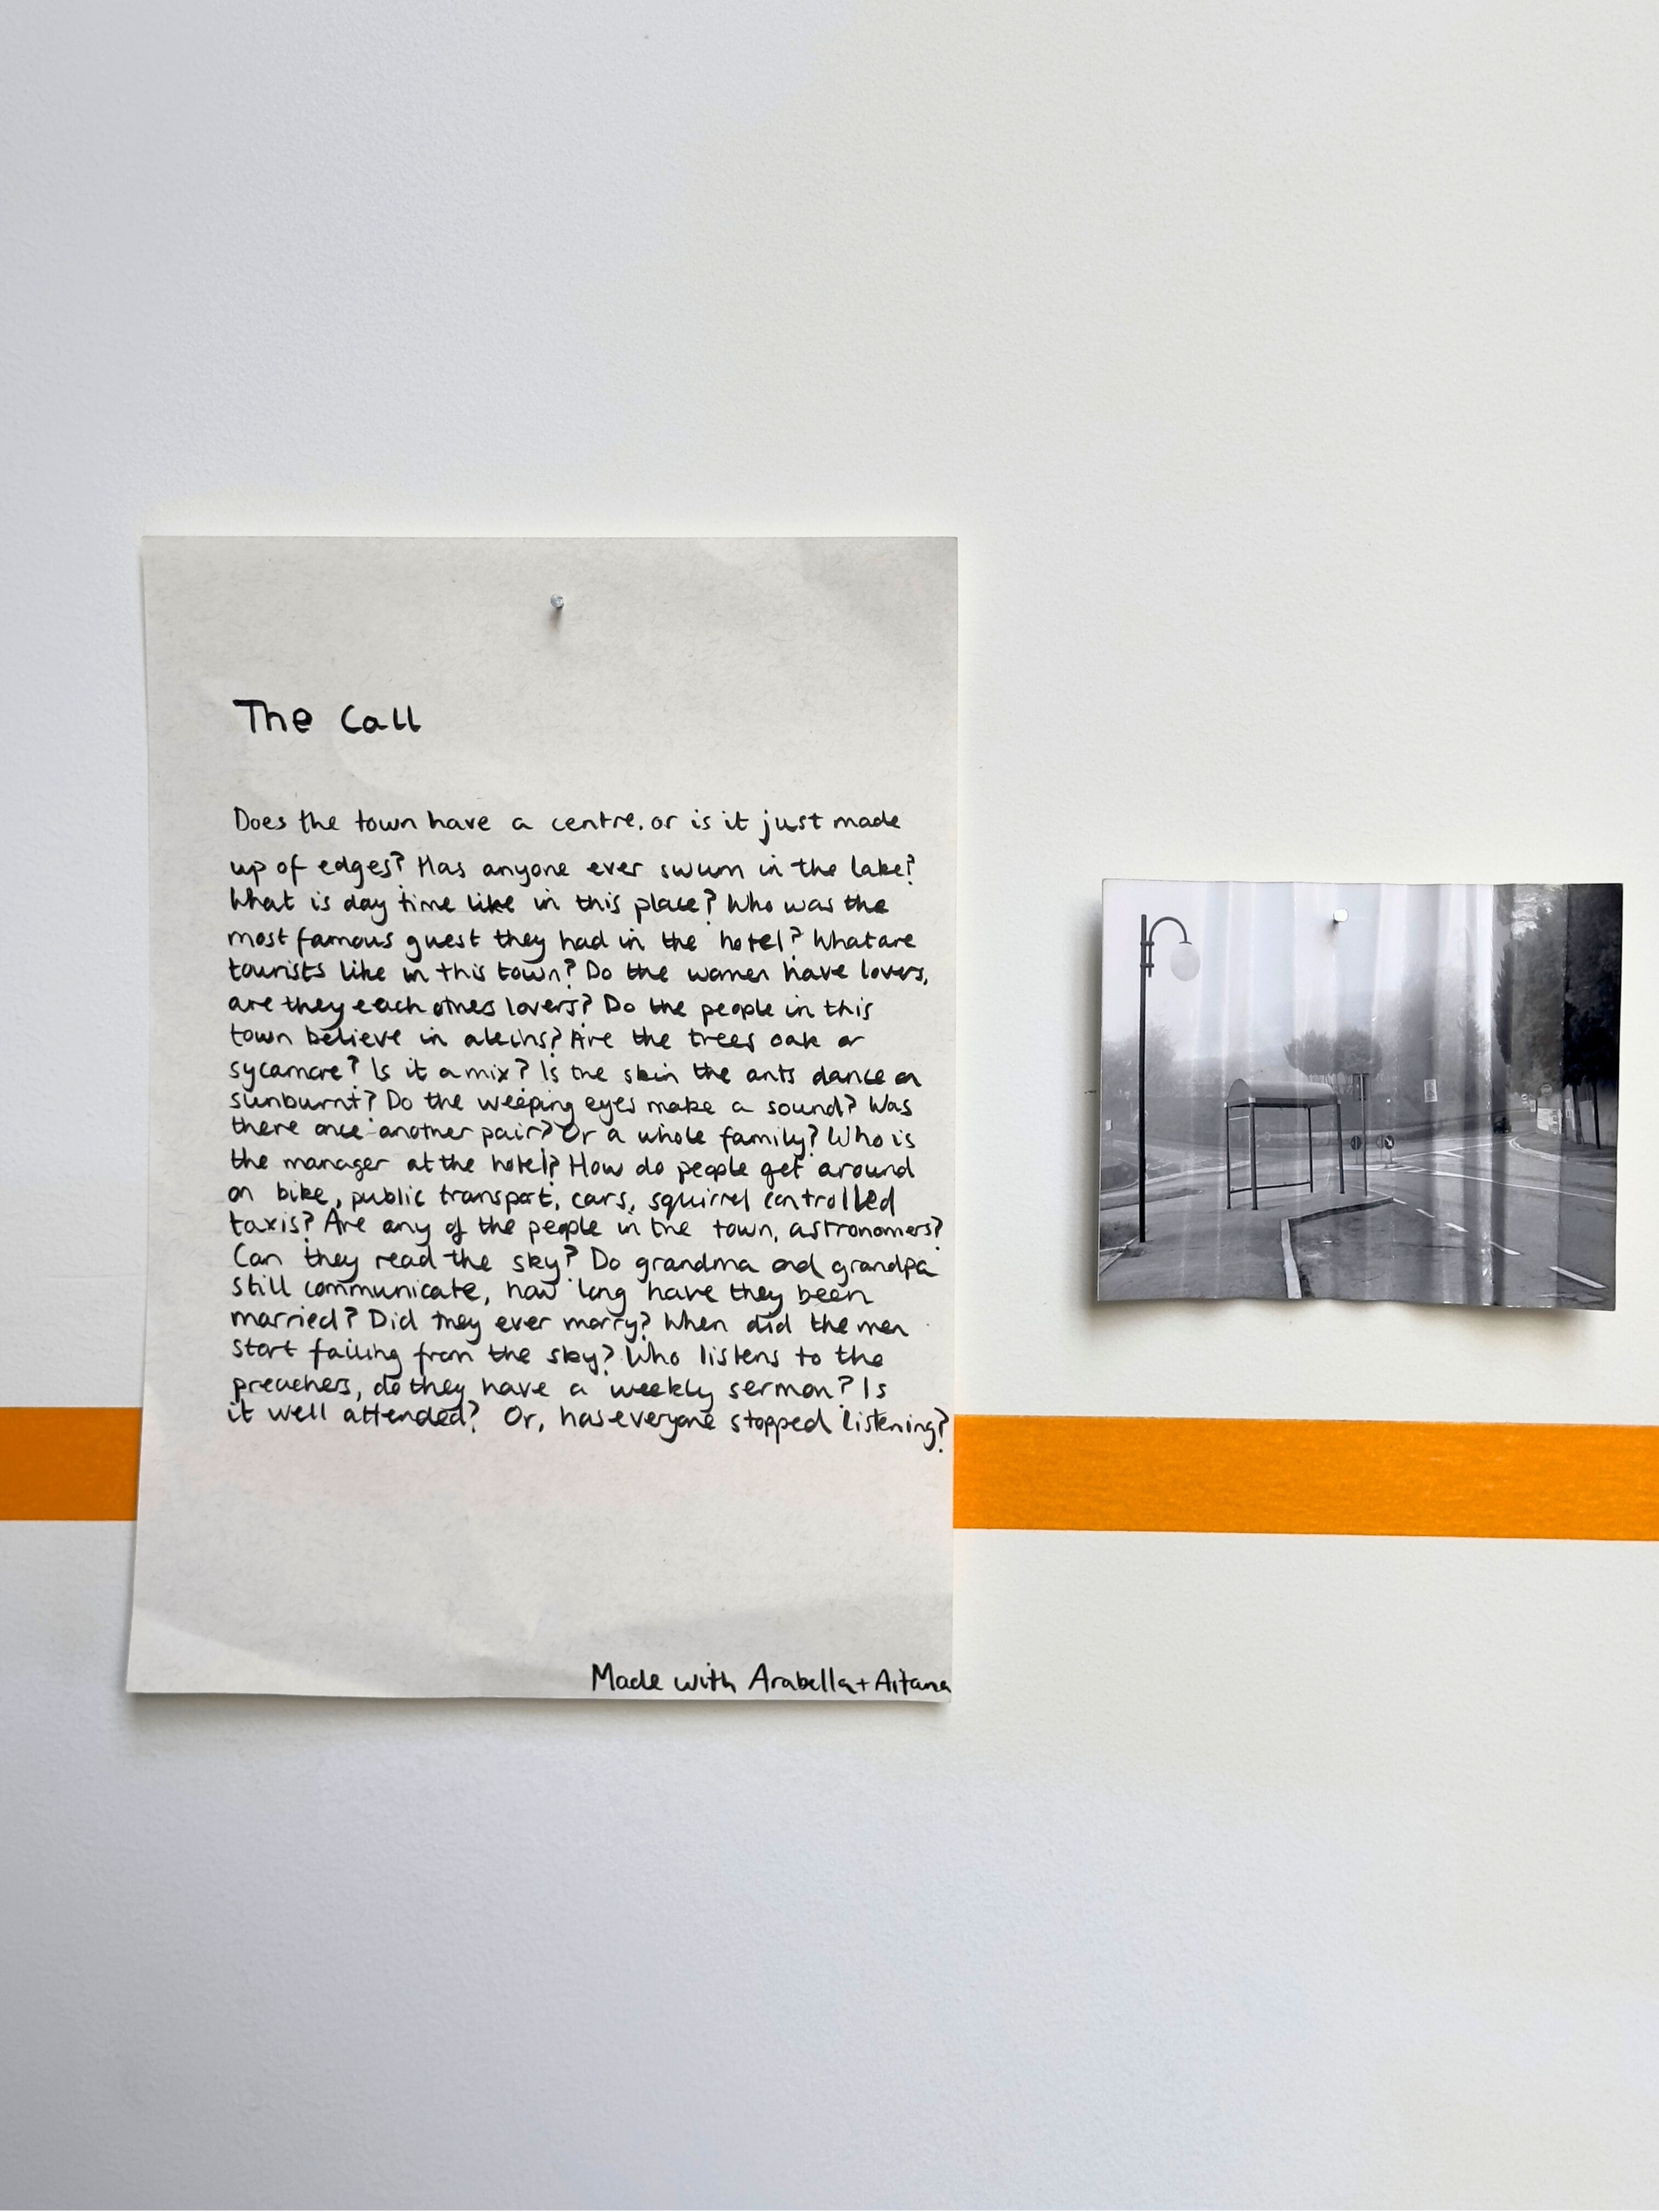 The Call
Does the town have a centre, or is it just made
up of edges? Has anyone ever swum in the lake?
What is day time like in this place? Who was the
most famous guest they had in the hotel? What are
tourists like in this town? Do the women have lovers,
are they each othes lovers? Do the people in this
town believe in aleins? Are the trees oak or
sycamore? Is it a mix? Is the skin the ants dance on
sunburnt? Do the weeping eyes make a sound? Was
there once another pair? Or a whole family? Who is
the manager at the hotel? How do people get around
on bike, public transport, cars, squirrel controlled
taxis? Are any of the people in the town, astronomers?
Can they read the sky? Do grandma and grandpa
still communicate, how long have they been
married? Did they ever marry? When did the men
start falling from the sky? Who listens to the
preachers, do they have a weekly sermon? Is
it well attended? Or, has everyone stopped listening?
Made with Arabella + Aitana